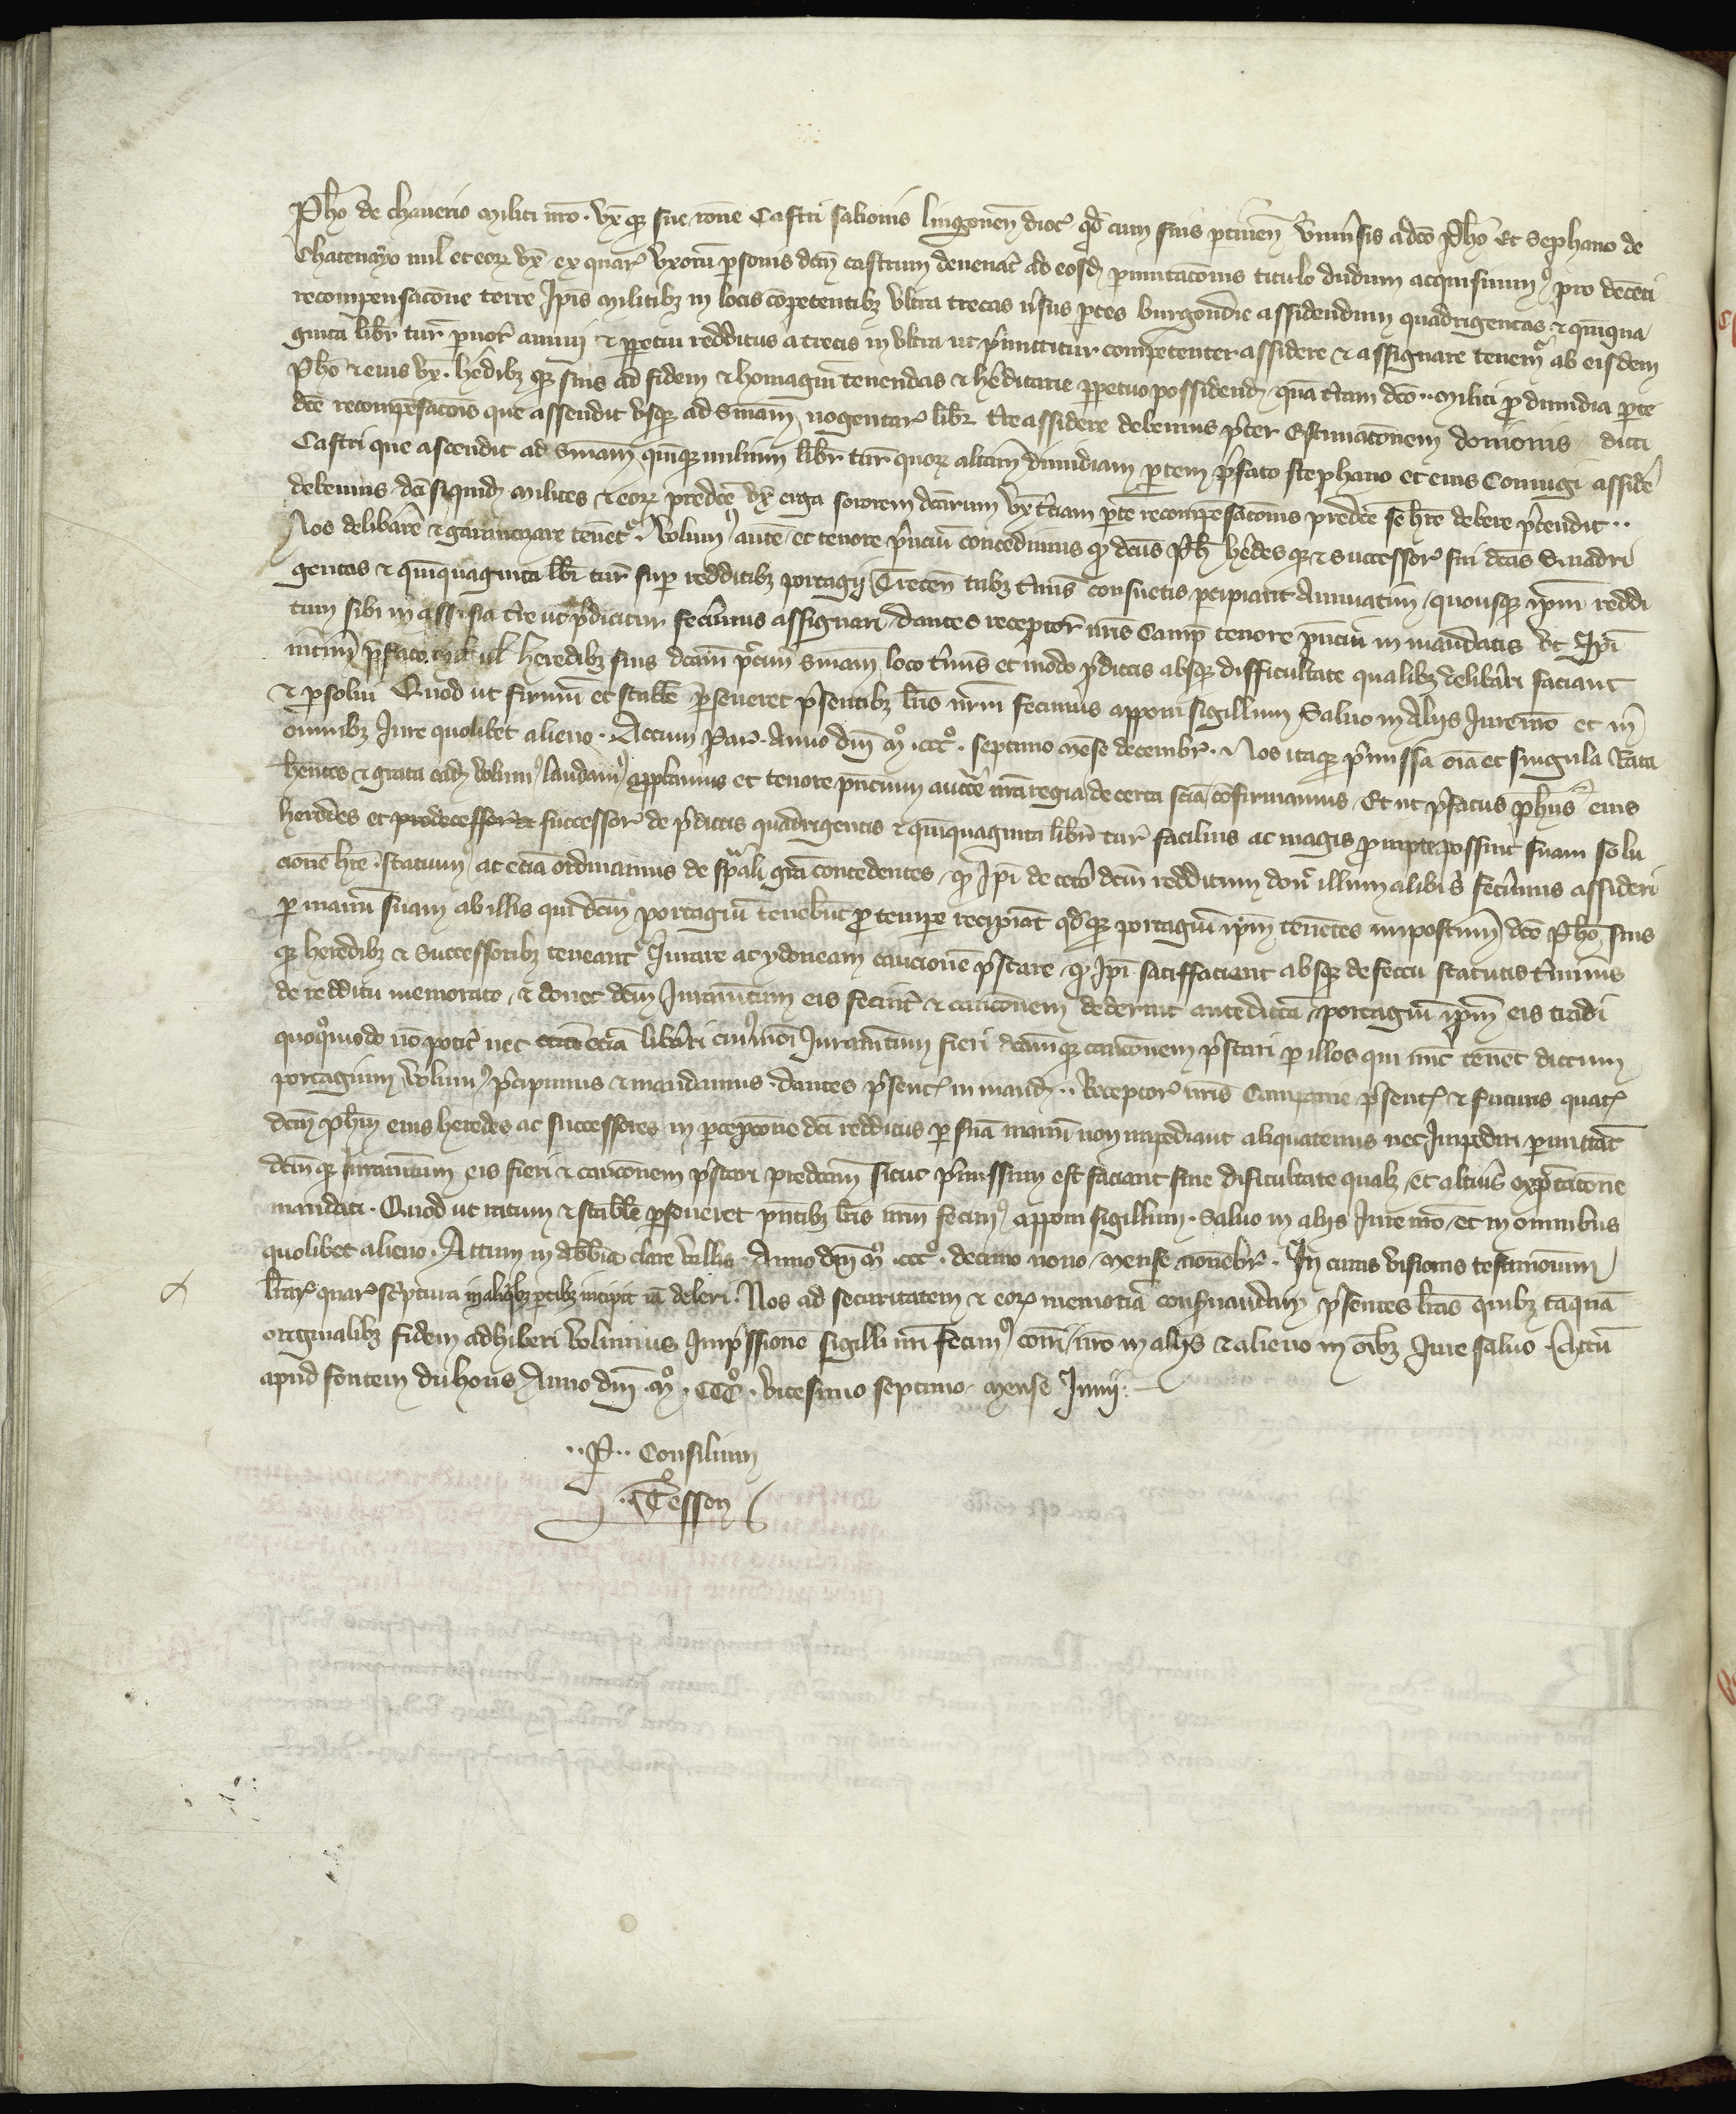 Ph̃o de chauerio militi nr̃o · vx̃ qꝫ sue rõne Castri salionis lingonen̄ dioc̄ qd̃ cum suis ptinen̄ vniu͛sis a dc̃o Ph̃o Et Stephano de
Chatenayo mil̃ et eoꝝ vx̃ ex quaꝝ vxorũ ꝑsonis dc̃m castrum deuenat̃ ad eosd̃ ꝑmutac̃onis titulo dudum acquisiuimꝰ pro decẽti
recompensac̃one terre Ip̃is militibꝫ in locis cõpetentibꝫ vltra trecas u͛sus ꝑtes burgondie assidendum quadringentas ⁊ qͥnqua
ginta libr̃ tur̃ paruoꝝ annui ⁊ ꝑpetui redditus a trecis in vltra ut p̃mittitur competenter assidere ⁊ assignare tenemͬ ab eisdem
Ph̃o ⁊ eius vx̃ · h̃edibꝫ qꝫ suis ad fidem ⁊ homagiũ tenendas ⁊ h̃editarie ꝑpetuo possidend̃ quã t̃ram dc̃o ·· militi ꝓ dimidia ꝑte
dc̃e recompẽsac̃ois que assendit vsqꝫ ad sm̃am nogentaꝝ libr̃ t̃re assidere debemus p̃ter Estimac̃onem donionis dicti
Castri que ascendit ad sm̃am quinqꝫ milium libr̃ tur̃ quoꝝ alt̃am dimidiam ꝑtem p̃fato stephano et eius Coniugi assidẽ
debemus dc̃i siquid̃ milites ⁊ eoꝝ predc̃e vx̃ erga sororem dc̃arum vx̃ t̃ciam ꝑtẽ recompẽsac̃onis predc̃e se h̃re debere p̃tendit ··
Nos delibãre ⁊ garantizare tenẽtͬ · Volumꝰ autẽ et tenore p̃nciũ concedimus ꝙ dc̃us Ph̃ h̃edes qꝫ ⁊ successoꝝ sui dc̃as Quadri
gentas ⁊ quinquaginta lib̃r tur̃ sup redditibꝫ portagij Trecen̄ tribꝫ t̃mis consuetis ꝑcipiant Annuatim / quousqꝫ ip̃m reddi
tum sibi in assisia t̃re ut p̃dicitur fecim͛us assignari / dantes receptoꝝ nr̃is Camp̄ tenore p̃nciũ in mandatis vt Ip̃i
int̃im p̃fato mil̃ ul̃ heredibꝫ suis dc̃am p̃tim sm̃am loco t̃mis et modo p̃dictis absqꝫ difficultate qualibꝫ delibãri faciant
⁊ ꝑsolui Quod ut firmũ et stabile ꝑseueret p̃sentibꝫ lr̃is nr̃m fecimus apponi sigillum Saluo in Aliis Iure nr̃o et in
omnibꝫ Iure quolibet alieno · Actum Par̃ · Anno dñi Mͦ · cccͦ · septimo mẽse decembr̃ · Nos itaqꝫ p̃missa oĩa et singula Rata
hẽntes ⁊ grata ead̃ Volumꝰ laudamꝰ approbamus et tenore p̃ncium auct̃te nr̃a regia de certa scĩa confirmamus · Et ut p̃fatus Ph̃us eius
heredes et predecessor͛ et successor͛ de p̃dictis quadrigentis ⁊ qͥnquaginta libr̃ tur̃ facilius ac magis ꝓmpte possint suam solu
cionẽ h̃re · statuimꝰ ac etiã ordinamus de sp̃ali grã concedentes ꝙ Ip̃i de cet͛o dc̃m redditum doneꝝ illum alibi s͛ fecim͛us assideri
ꝑ manũ suam ab illis qui dc̃m portagiũ tenebũt ꝓ tempe recipiãt qd̃ qꝫ portagiũ ip̃m tenẽtes impost̃im dc̃o Ph̃o suis
qꝫ heredibꝫ ⁊ Successoribꝫ teneantͬ Iurare ac ydoneam caucionẽ p̃stare ꝙ Ip̃i satiffacient absqꝫ defectu statutis t̃minis
de redditu memorato ⁊ donec dc̃m Iuramẽtum eis fecint̃ ⁊ cauc̃onem dederint antedictã portagiũ ip̃m eis tradi
quoqͦmodo nõ poꝉit nec etiã libãri cuiꝰmodi Iuramẽtum fieri dc̃amqꝫ cauc̃onem p̃stari ꝑ illos qui nũc tenẽt dictum
portagium Volumꝰ p̃cipimus ⁊ mandamus · dantes p̃sent͛ in mand̃ ·· Receptoꝝ nr̃is Campanie p̃sent͛ ⁊ futuris quatͤ
dc̃m Ph̃m eius heredes ac successores in ꝑcepc̃one dc̃i redditus ꝑ suã manũ non impediant aliquatenus nec Impediri ꝑmittãt
dc̃mqꝫ Iuramẽtum eis fieri ⁊ cauc̃onem p̃stari predc̃am sicut p̃missum est faciant sine dificultate qualꝫ · et alt͛ius exp̃ctac̃one
mandati · Quod ut ratum ⁊ stabile ꝑseueret p̃ntibꝫ lr̃is nr̃m fecimꝰ apponi sigillum · Saluo in aliis Iure nr̃o · et in omnibus
quolibet alieno · Actum in abb̃ia clare vallis · Anno dñi Mͦ · cccͦ · decimo nono mense nouẽbr̃ · In cuius visionis testimonium
lr̃aꝝ quaꝝ sc̃ptura in aliqͥbꝫ ꝑtibꝫ incipit iã deleri · Nos ad securitatem ⁊ eoꝝ memoriã conseruandam p̃sentes lr̃as quibꝫ tãquã
originalibꝫ fidem adhiberi volumus Imp̃ssione sigilli nr̃i fecimꝰ com̃i / nr̃o in aliis ⁊ alieno in oĩbꝫ Iure saluo · Actũ
apud fontem du hous Anno dñi · Mͦ · CCCͦ · vicesimo septimo · mense Iunij ·
·· P̱ ·· Consilium
· Tesson